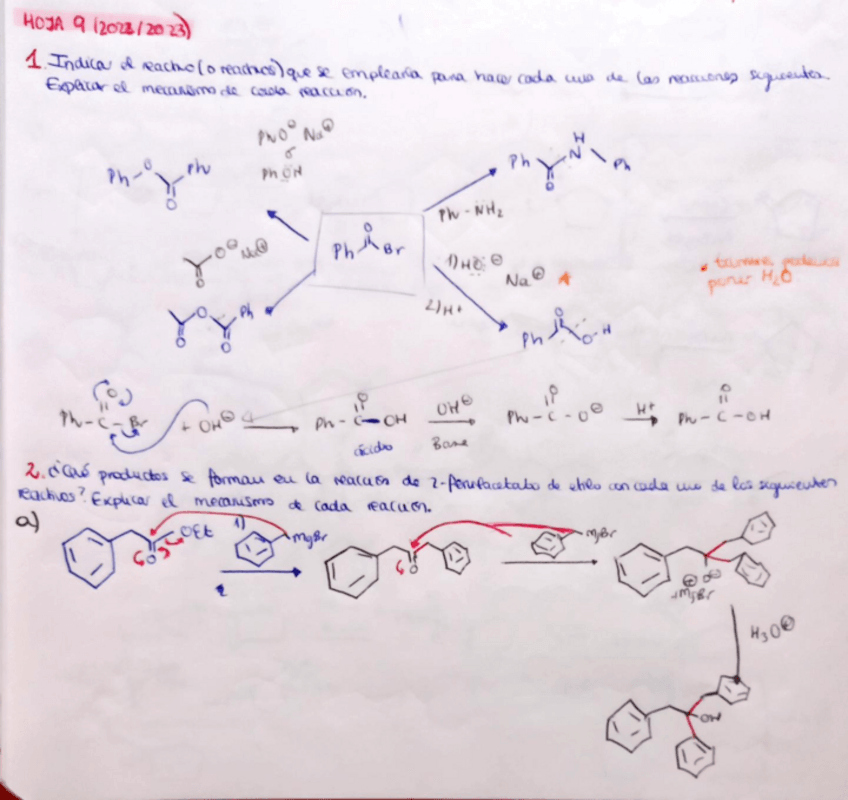 HOJA 9 (2022/2023)
1. Indica el reactivo (o reactivos) que se emplearía para hacer cada una de las reacciones siguientes.
Explicar el mecanismo de cada reacción.
PhO⊖ Na⊕
o
PhOH
Ph O Ph
O
H
Ph N Ph
O
Ph-NH₂
O
Ph Br
O⊖ Na⊕
O
1) HO⊖ Na⊕
2) H+
* también podríamos
poner H₂O
O Ph
O O
O
Ph O H
O
Ph-C-Br + OH⊖
O
Ph-C-OH
ácido
OH⊖
Base
O
Ph-C-O⊖
H+
O
Ph-C-OH
2. ¿Qué productos se forman en la reacción de 2-fenilacetato de etilo con cada uno de los siguientes
reactivos? Explicar el mecanismo de cada reacción.
a)
OEt
O
1)
MgBr
O
MgBr
O⊖
⊕MgBr
H₃O⊕
OH